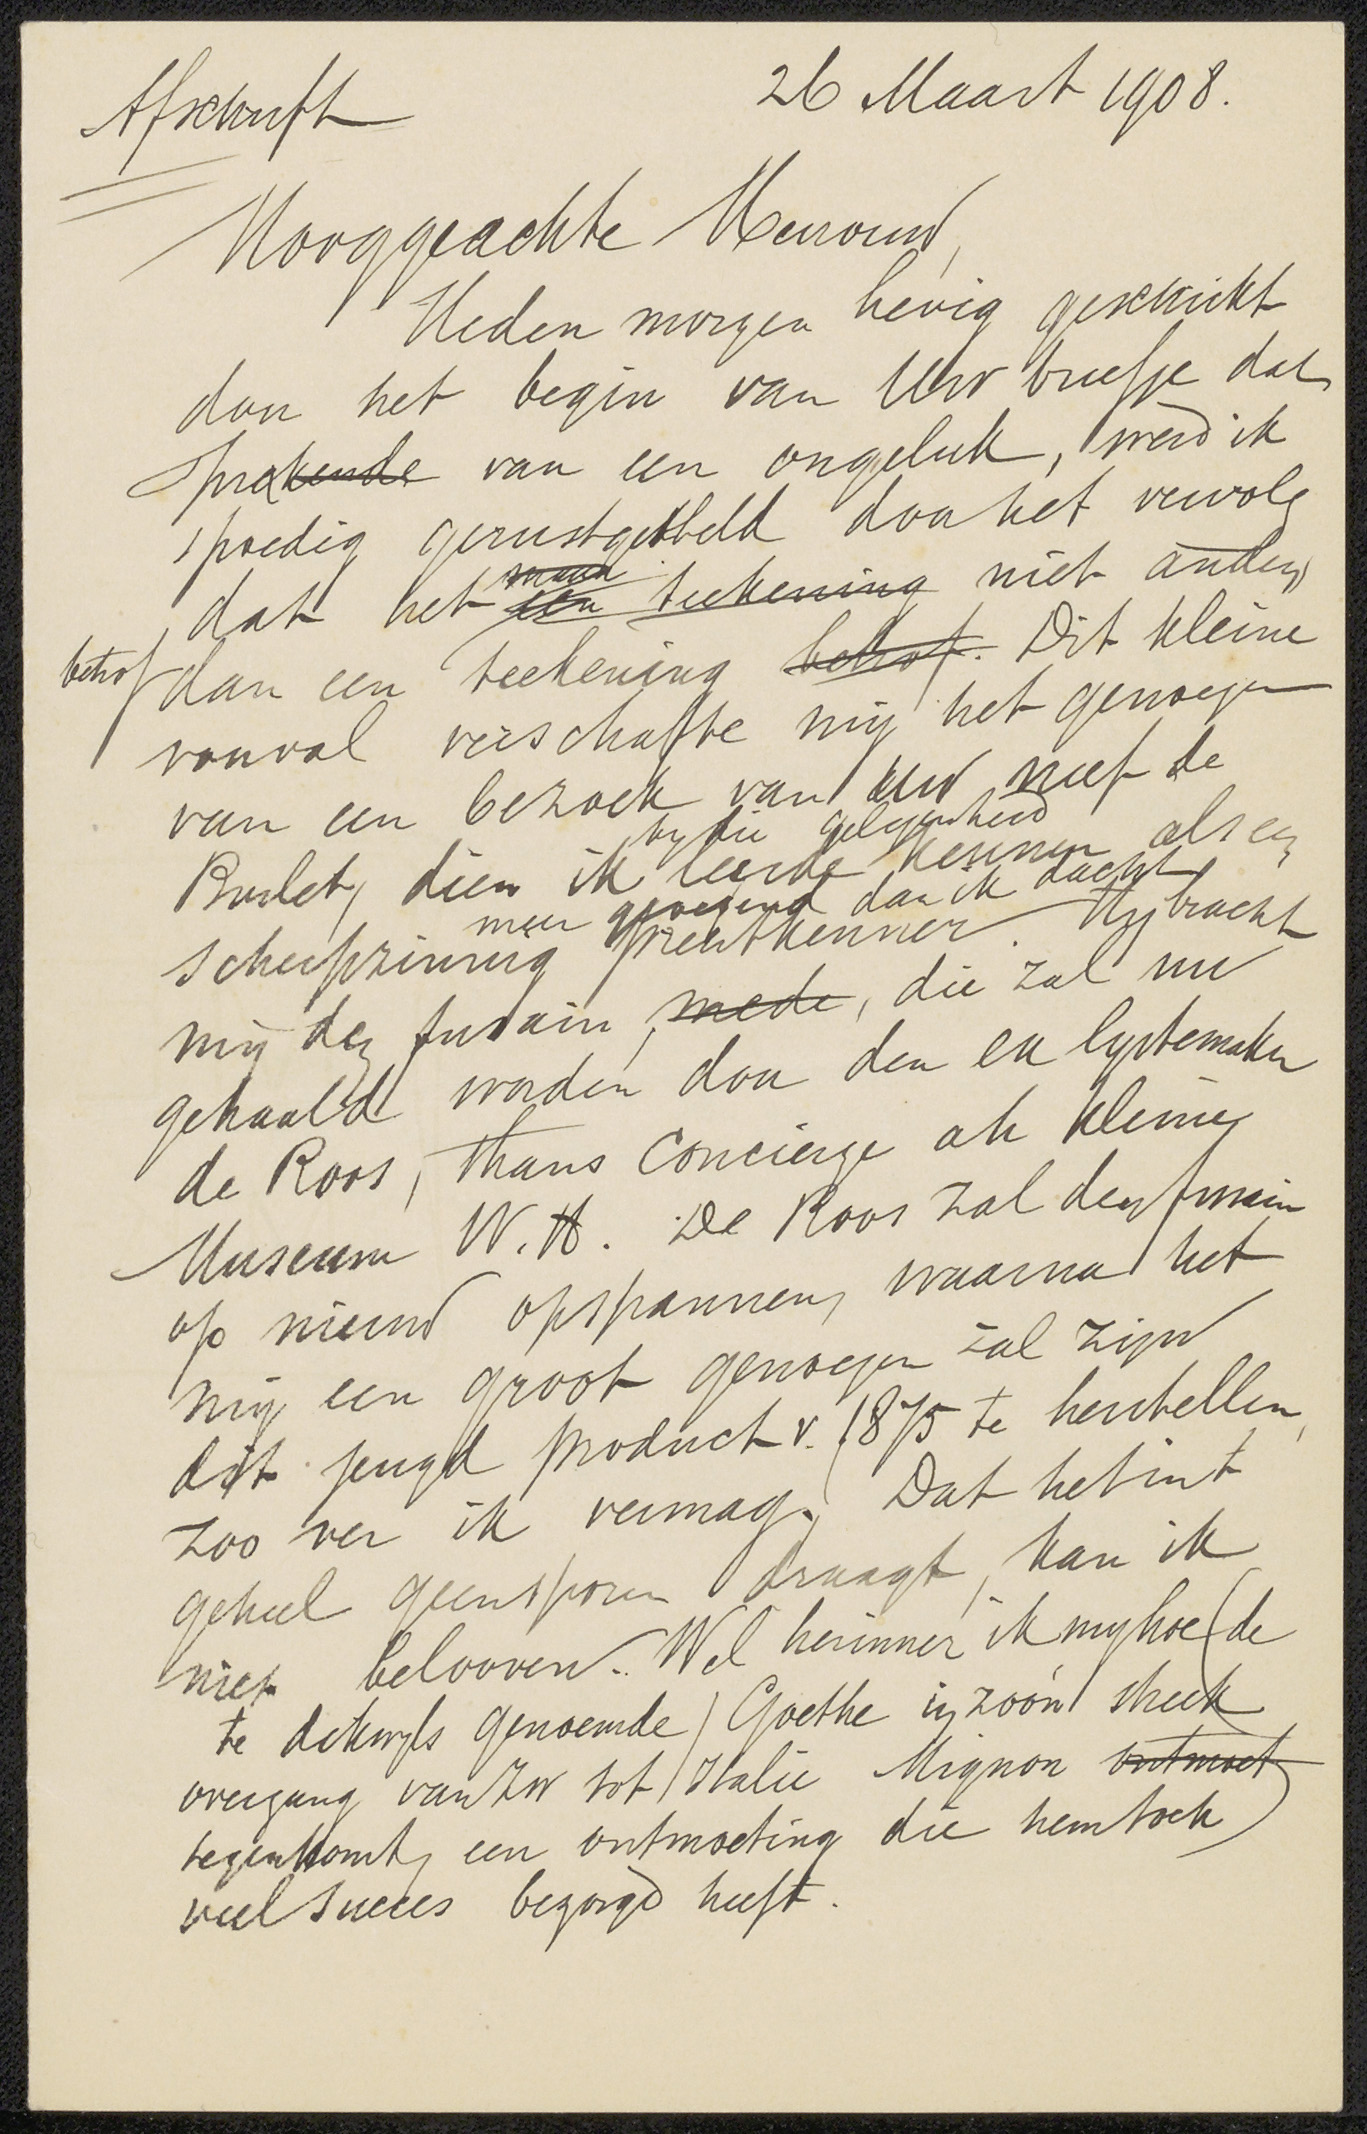 Afschrift
26 Maart 1908.
Hooggeachte Mevrouw,
Heden morgen hevig geschrikt
door het begin van Uw briefje dat
sprakende van een ongeluk, werd ik
spoedig gerustgesteld door het vervolg
dat het maar een teekening niet anders
betrof dan een teekening betrof. Dit kleine
voorval verschafte mij het genoegen
van een bezoek van Uw neef de
bij die gelegenheid
dien ik leerde kennen als een
meer geroepend dan ik dacht
scherpzinnig prentkenner. Hij bracht
mij den fusain mede, die zal nu
gehaald worden door den ex lystemaker
de Roos, thans Concierge ah kleine
Museum W. H. De Roos zal den fusain
op nieuw opspannen, waarna het
mij een groot genoegen zal zijn
dit jeugd product v. 1875 te herstellen,
zoo ver ik vermag. Dat het int
geheel geen sporen draagt, kan ik
niet beloven. Wel herinner ik mij hoe (de
te dikwijls genoemde) Goethe in zoo'n streek
overgang van ZW tot Italie Mignon ontmoet
tegenkomt, een ontmoeting die hem toch
veel succes bezorgd heeft.